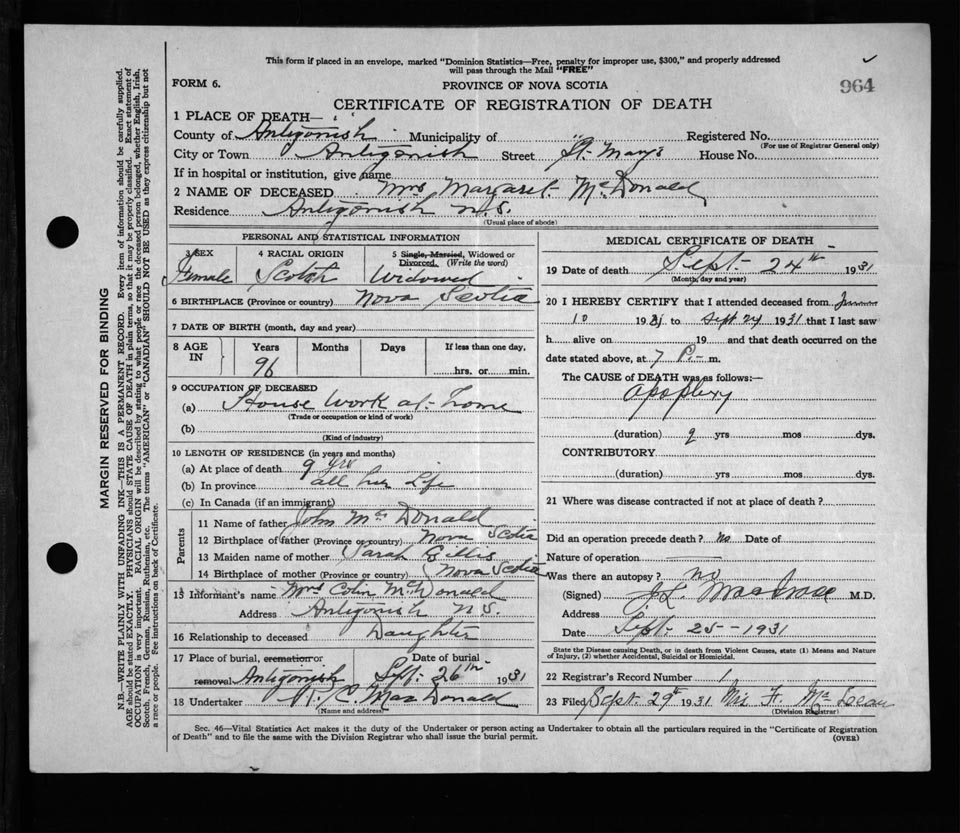 This form if placed in an envelope, marked "Dominion Statistics—Free, penalty for improper use, $300," and properly addressed
will pass through the Mail "FREE"
964
FORM 6.
PROVINCE OF NOVA SCOTIA
CERTIFICATE OF REGISTRATION OF DEATH
1 PLACE OF DEATH—
County of Antigonish Municipality of Registered No.
(For use of Registrar General only)
City or Town Antigonish Street St. Mary's House No.
If in hospital or institution, give name
2 NAME OF DECEASED Mrs Margaret McDonald
Residence Antigonish N.S.
(Usual place of abode)
PERSONAL AND STATISTICAL INFORMATION
3 SEX 4 RACIAL ORIGIN 5 Single, Married, Widowed or
Divorced. (Write the word)
Female Scotch Widowed
6 BIRTHPLACE (Province or country) Nova Scotia
7 DATE OF BIRTH (month, day and year)
8 AGE IN Years Months Days If less than one day.
96 hrs. or min.
9 OCCUPATION OF DECEASED
(a) House work at home
(Trade or occupation or kind of work)
(b)
(Kind of industry)
10 LENGTH OF RESIDENCE (in years and months)
(a) At place of death 9 yrs
(b) In province all her life
(c) In Canada (if an immigrant)
Parents
11 Name of father John McDonald
12 Birthplace of father (Province or country) Nova Scotia
13 Maiden name of mother Sarah Gillis
14 Birthplace of mother (Province or country) Nova Scotia
15 Informant's name Mrs Colin McDonald
Address Antigonish N.S.
16 Relationship to deceased Daughter
17 Place of burial, cremation or Date of burial
removal Antigonish Sept. 26th 1931
18 Undertaker C. MacDonald
(Name and address)
MEDICAL CERTIFICATE OF DEATH
19 Date of death Sept. 24th 1931
(Month, day and year)
20 I HEREBY CERTIFY that I attended deceased from
10 1931 to Sept 24 1931 that I last saw
h alive on 19 and that death occurred on the
date stated above, at 7 P. m.
The CAUSE of DEATH was as follows:—
Apoplexy
(duration) 9 yrs mos dys.
CONTRIBUTORY
(duration) yrs mos dys.
21 Where was disease contracted if not at place of death?
Did an operation precede death? no Date of
Nature of operation
Was there an autopsy? no
(Signed) M.D.
Address
Date Sept. 25 - 1931
State the Disease causing Death, or in death from Violent Causes, state (1) Means and Nature
of Injury, (2) whether Accidental, Suicidal or Homicidal.
22 Registrar's Record Number 1
23 Filed Sept. 29th 1931
(Division Registrar)
Sec. 46—Vital Statistics Act makes it the duty of the Undertaker or person acting as Undertaker to obtain all the particulars required in the "Certificate of Registration
of Death" and to file the same with the Division Registrar who shall issue the burial permit.
(OVER)
MARGIN RESERVED FOR BINDING
N.B.—WRITE PLAINLY WITH UNFADING INK—THIS IS A PERMANENT RECORD. Every item of information should be carefully supplied.
AGE should be stated EXACTLY. PHYSICIANS should STATE CAUSE OF DEATH in plain terms, so that it may be properly classified. Exact statement of
OCCUPATION is very important. RACIAL ORIGIN will be described by stating to what people or race the deceased person belonged, whether English, Irish,
Scotch, French, German, Russian, Ruthenian, etc. The terms "AMERICAN" or "CANADIAN" SHOULD NOT BE USED as they express citizenship but not
a race or people. See instructions on back of Certificate.